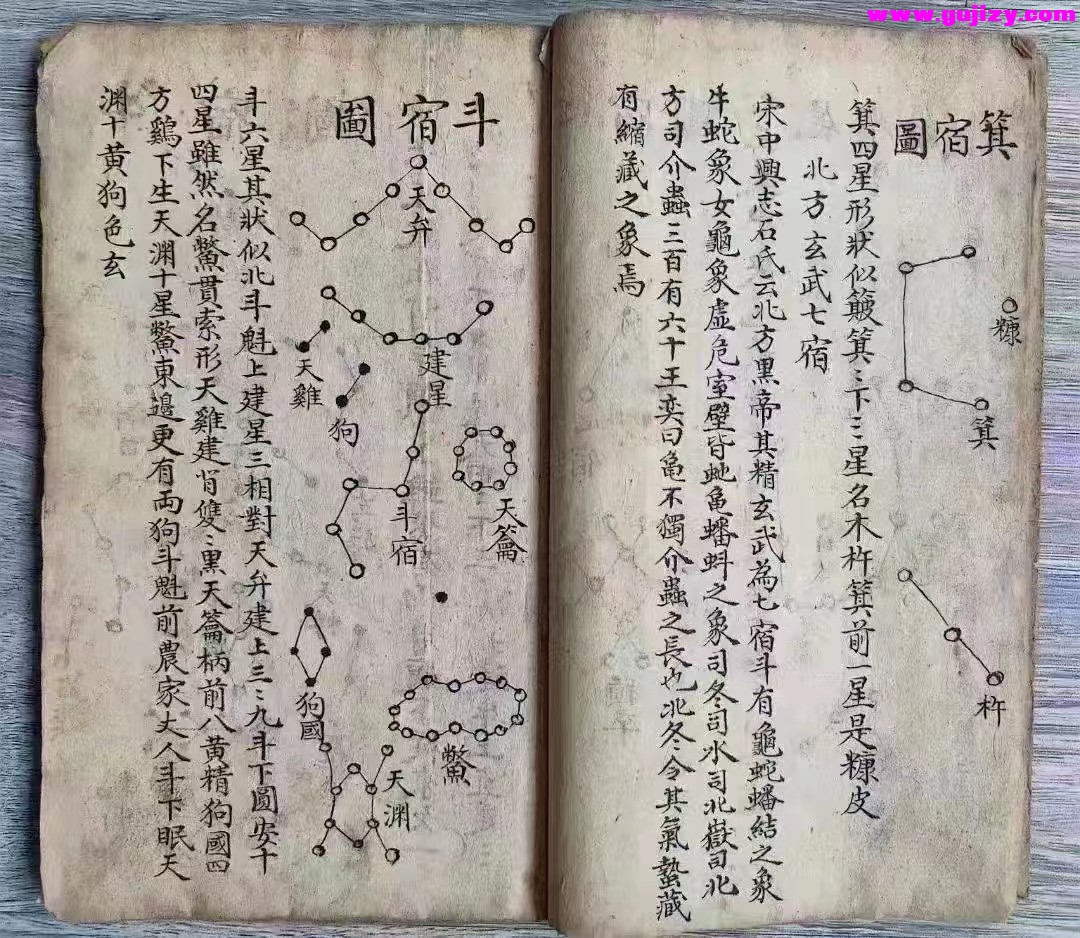 www.gujizy.com
箕宿圖
糠
箕
杵
箕四星形狀似簸箕〻下三星名木杵箕前一星是糠皮
北方玄武七宿
宋中興志石氏云北方黑帝其精玄武為七宿斗有龜蛇蟠結之象
牛蛇象女龜象虛危室壁皆虵亀蟠蚪之象司冬司水司北嶽司北
方司介蟲三百有六十王奕曰亀不獨介蟲之長也北冬〻令其氣蟄藏
有縮藏之象焉
斗宿圖
天弁
建星
天雞
狗
斗宿
天籥
狗國
鱉
天渊
斗六星其狀似北斗魁上建星三相對天弁建上三〻九斗下圓安十
四星雖然名鱉貫索形天雞建背雙〻黑天籥柄前八黄精狗國四
方鷄下生天渊十星鱉東邊更有両狗斗魁前農家丈人斗下眠天
渊十黄狗色玄